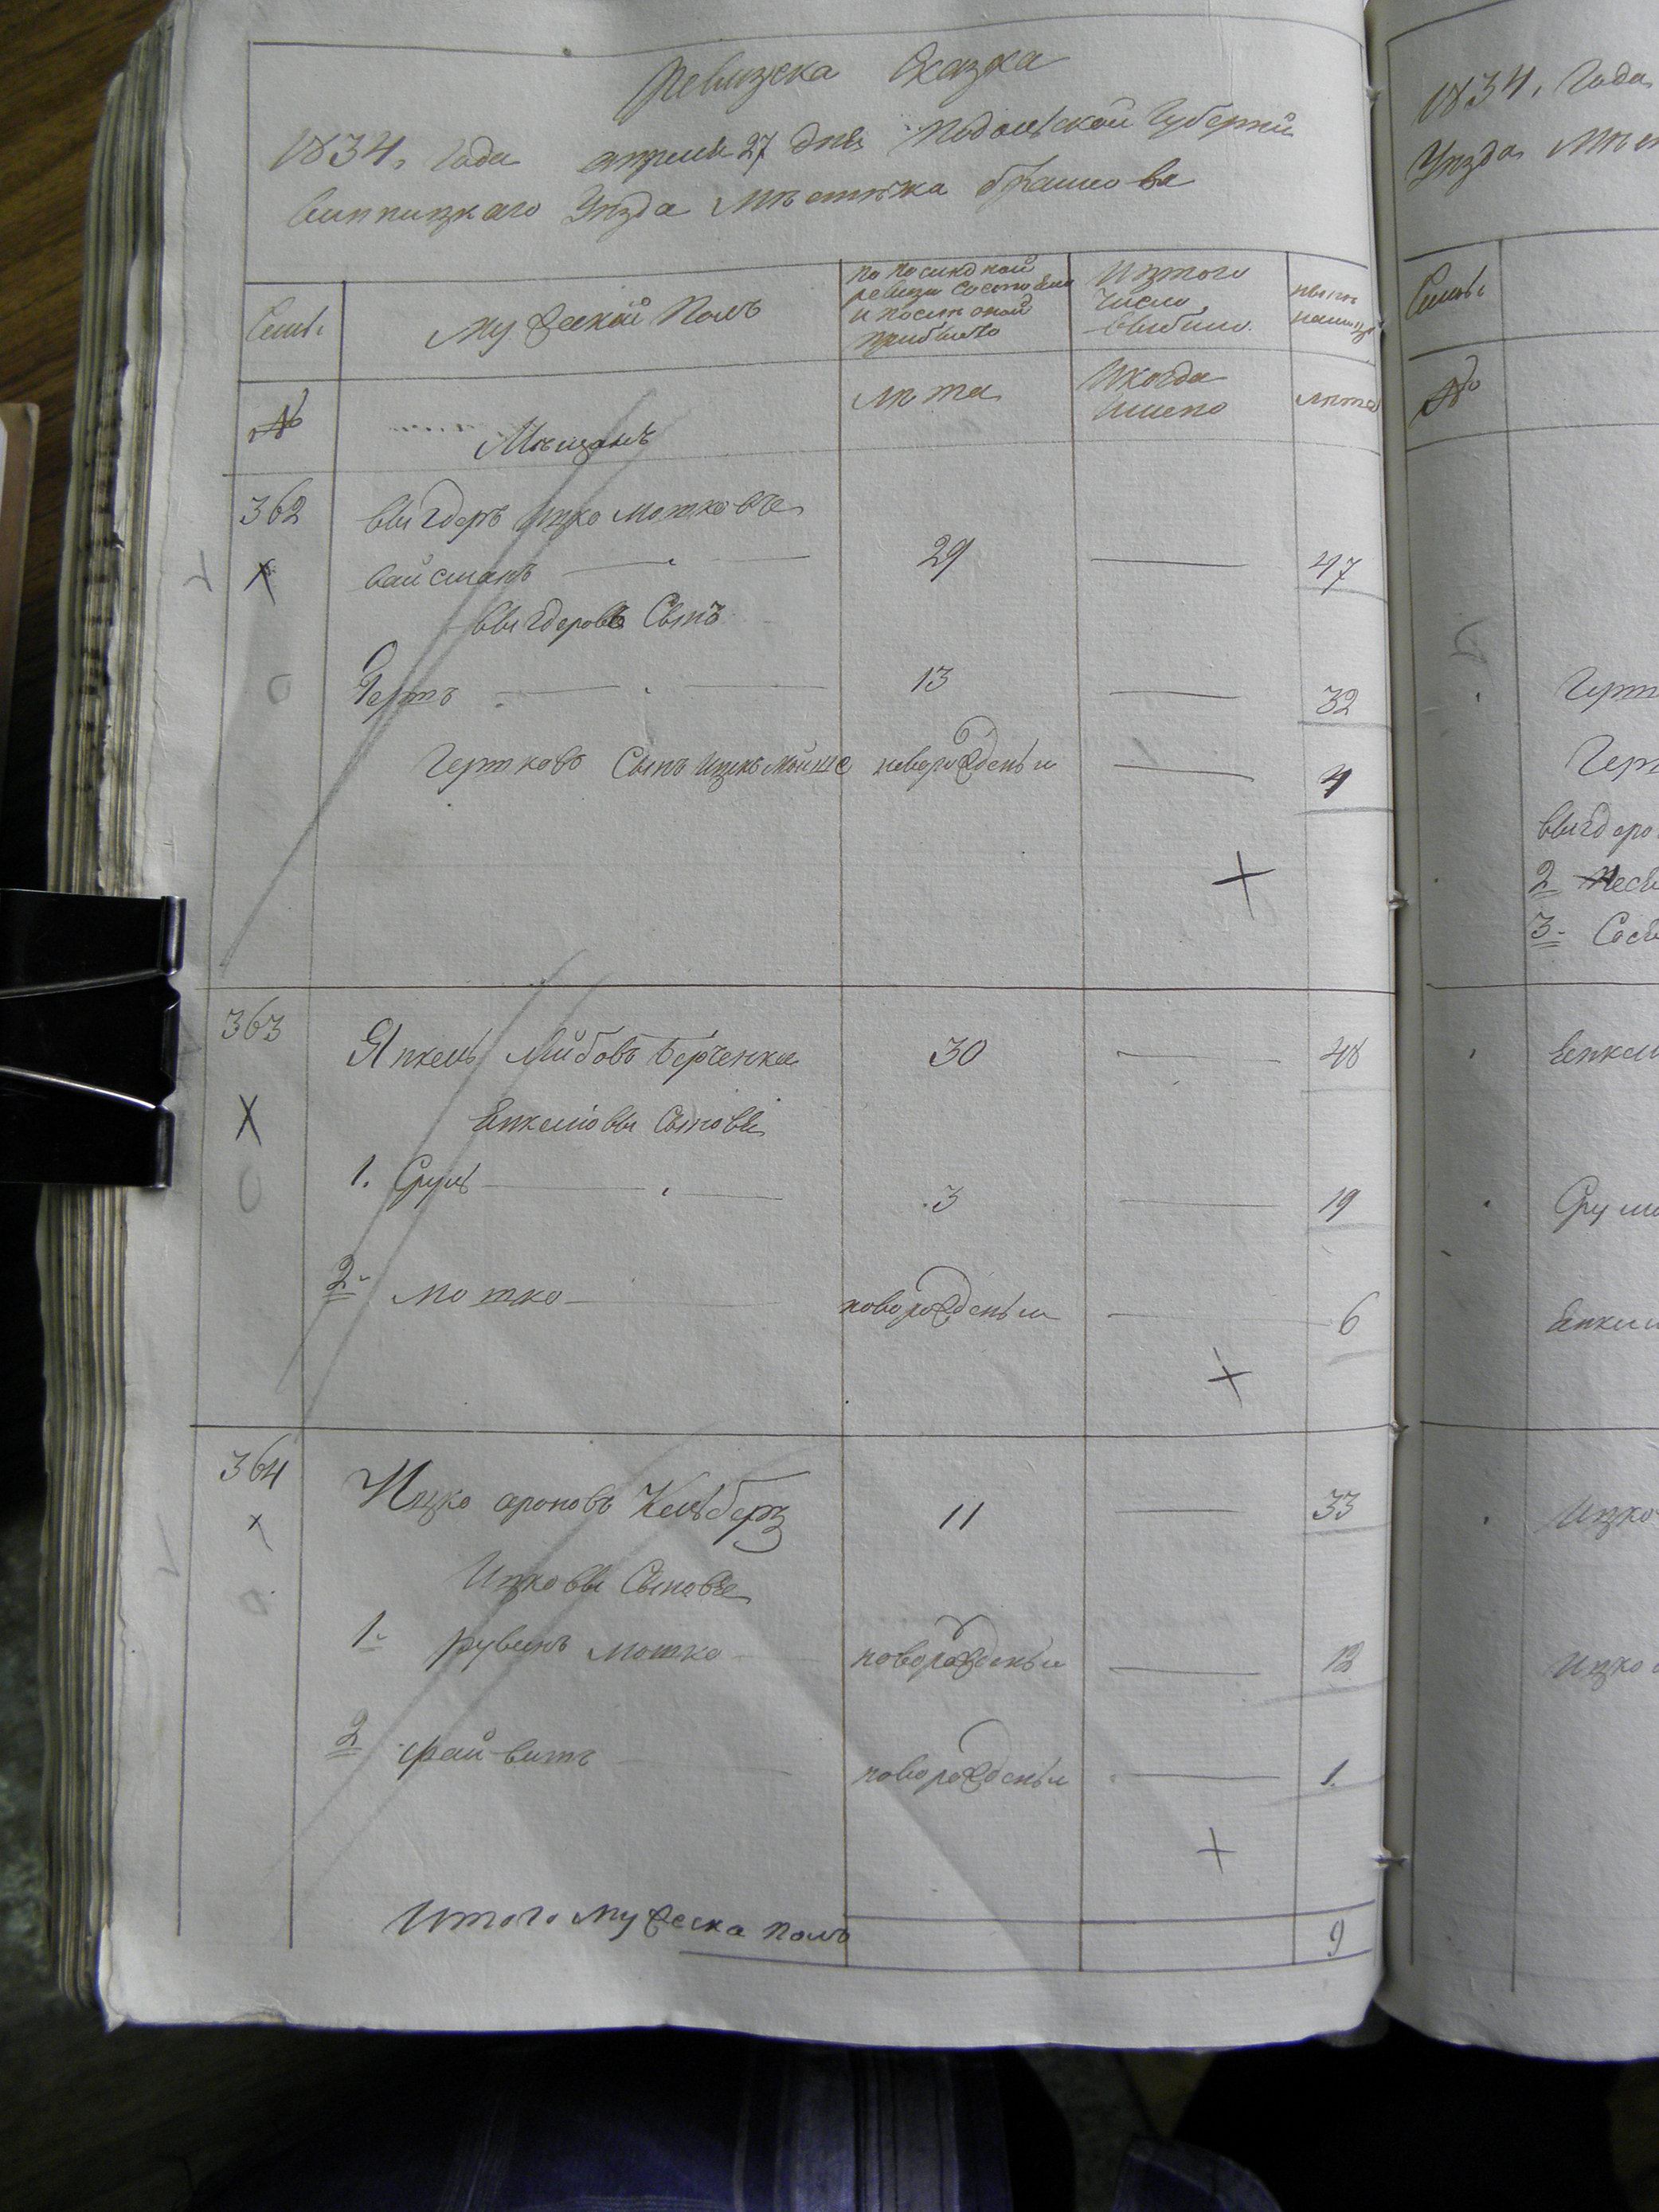 Ревизска Сказка
1834, года апреля 27 дня Подольской Губернии
Винницкаго Уезда Местечка Браилова
Семьи
Мужескай Полъ
по последней
ревизи состояло
и после оной
прибыло
Изтого
числа
выбыло.
ныне
налицо
№
Мещанъ
лета
Икогда
имено
лета
362
Выгдеръ Ицко Мошковъ
Вайсманъ
29
47
Выгдеровъ Сынъ
Гершъ
13
32
Гершковъ Сынъ Ицикъ Мойше
новорожденый
4
363
Янкель Лейбовъ Берченко
30
48
Енкелювы Сыновья
1. Сруль
3
19
2 Мошко
новорожденый
6
364
Ицко Ароновъ
11
33
Ицковы Сыновья
1 Рувенъ Мошко
новорожденый
12
2 Файвишъ
новорожденый
1.
Итого Мужеска полъ
9
1834, Года
Уезда
Семьи
№
2
3